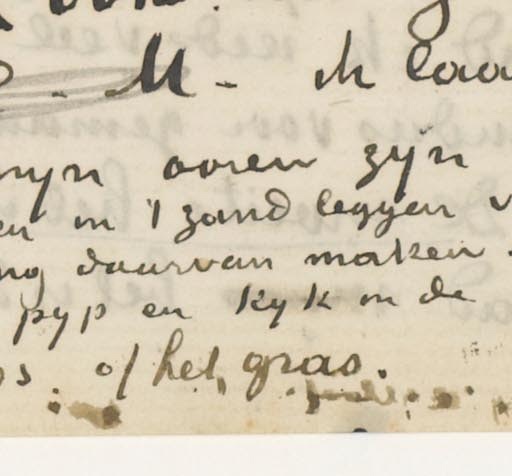 M. ik laa
mijn ooren zijn
en in 't zand leggen v
ng daarvan maken.
pyp en kyk in de
os. of het gras.